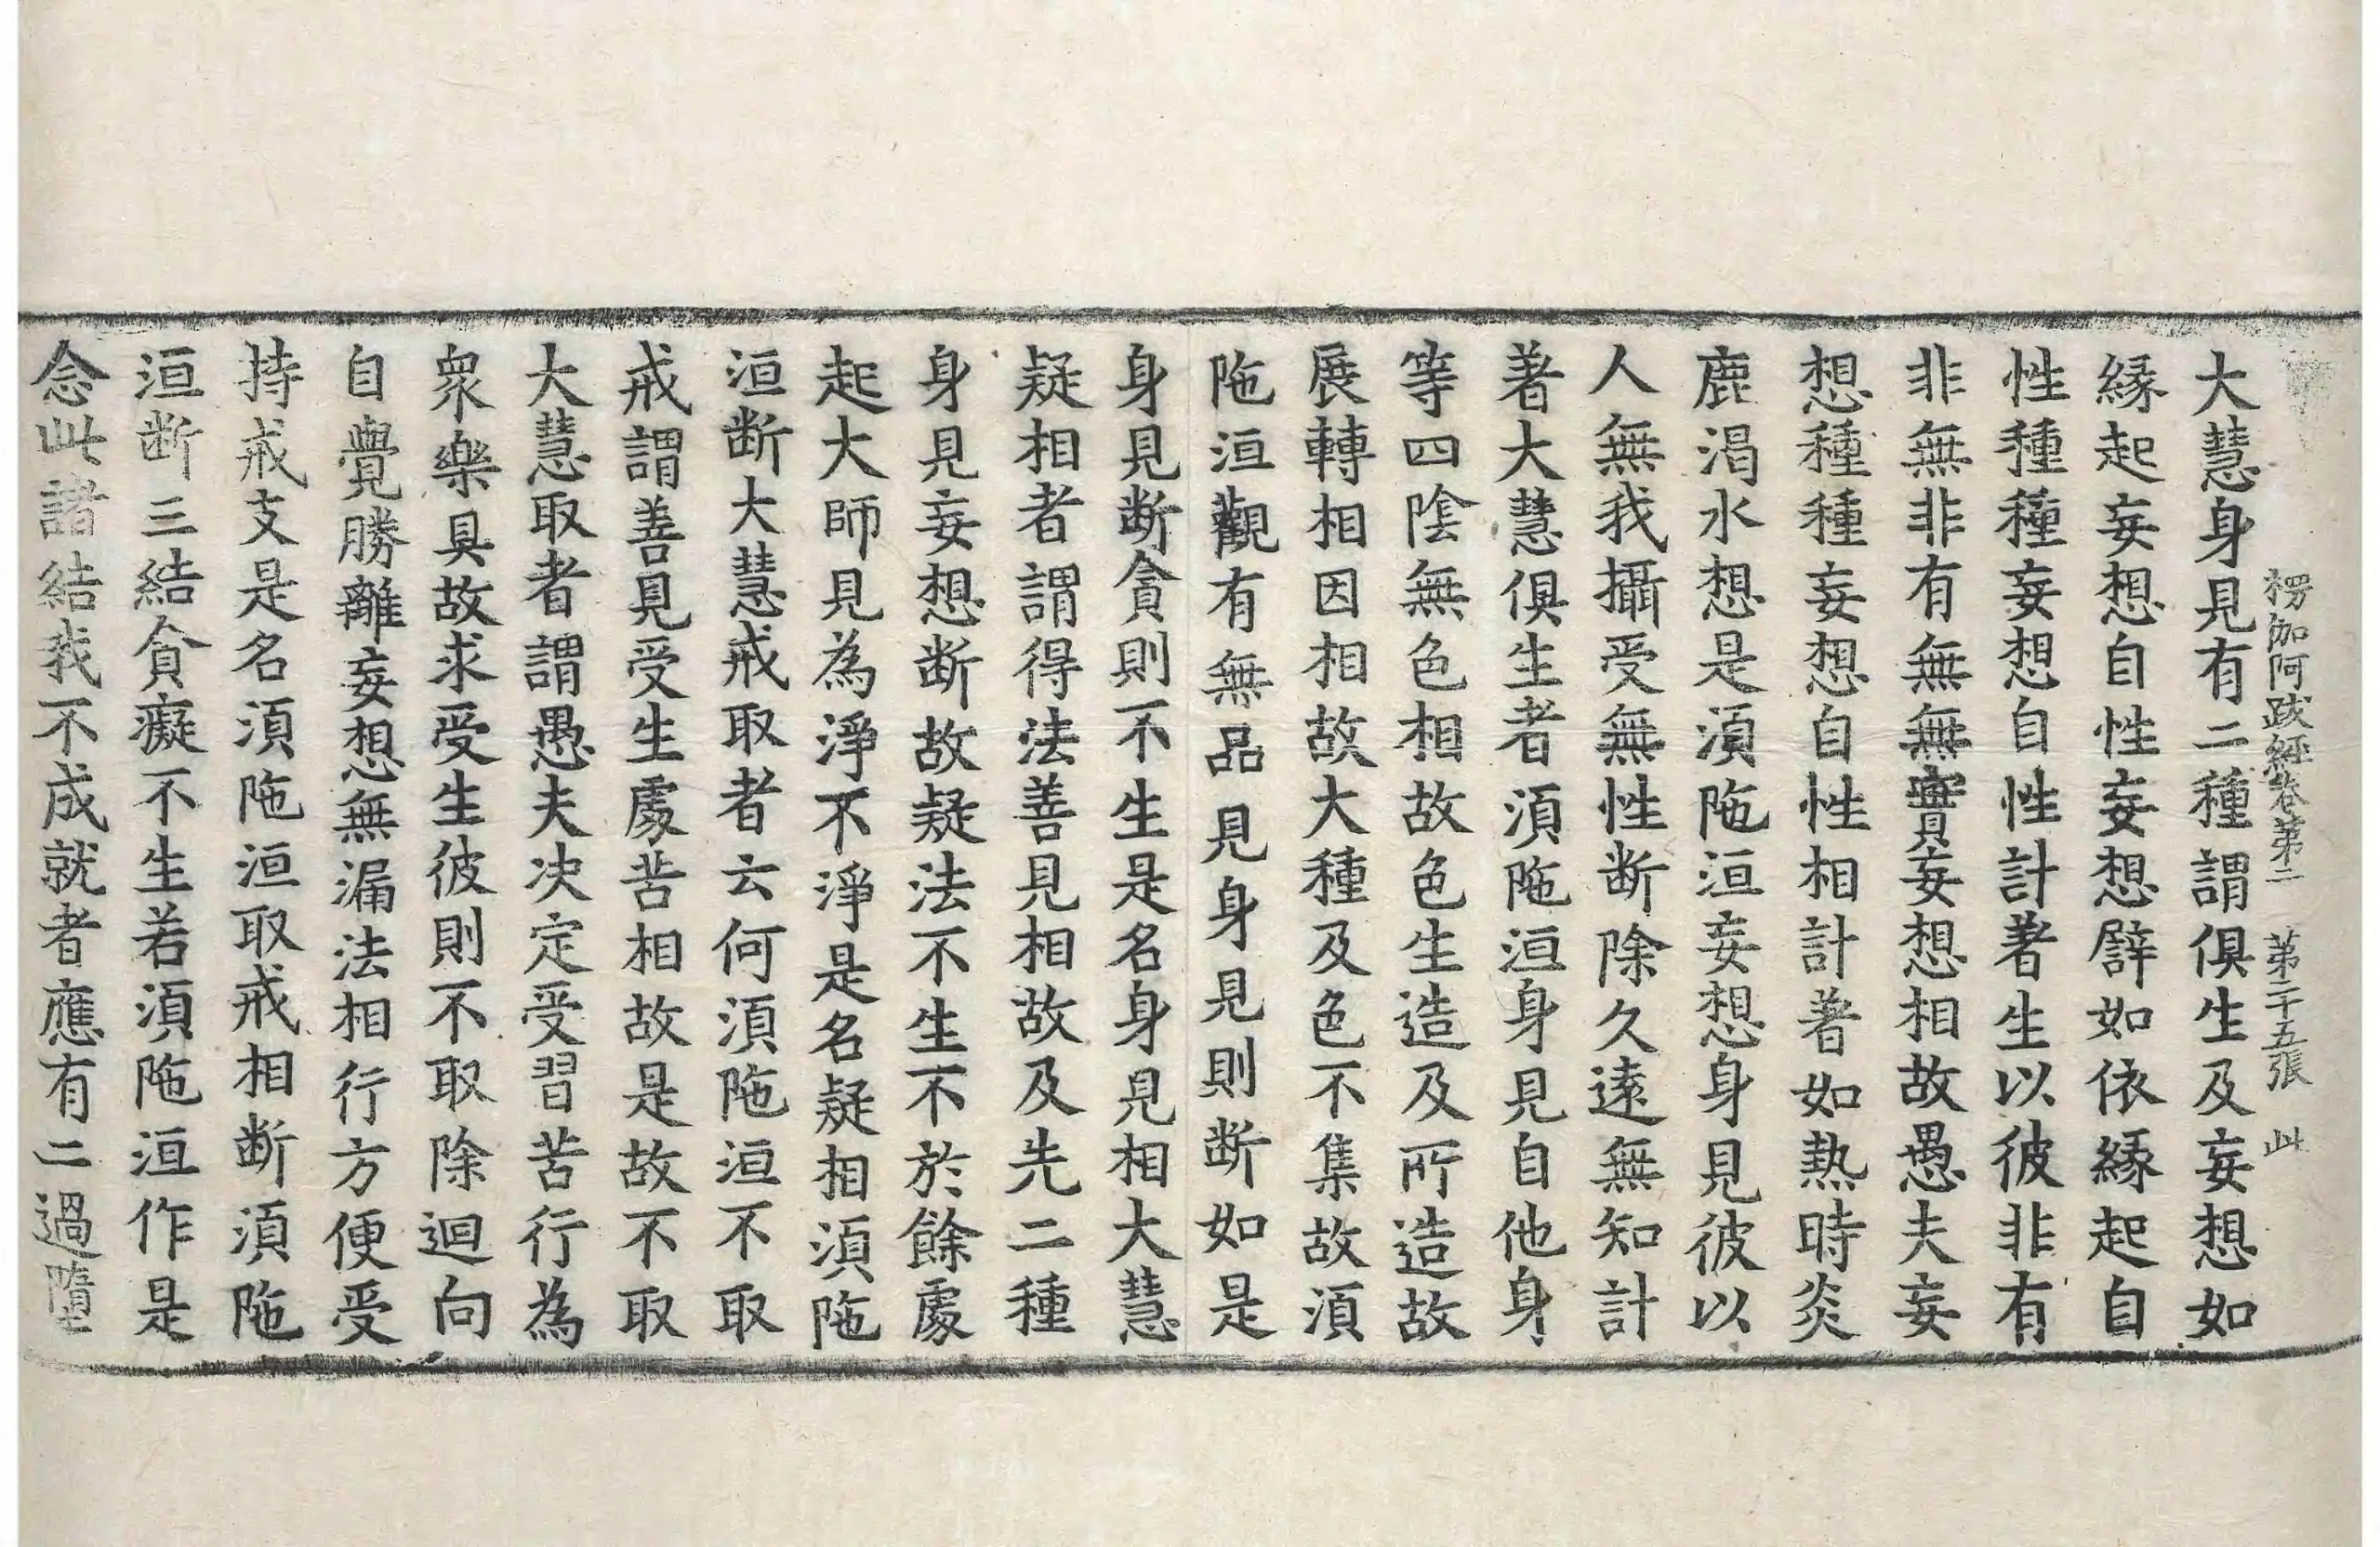 楞伽阿跋經卷第二 第二十五張 此
大慧身見有二種謂俱生及妄想如
縁起妄想自性妄想譬如依縁起自
性種種妄想自性計著生以彼非有
非無非有無無實妄想相故愚夫妄
想種種妄想自性相計著如熱時炎
鹿渴水想是湏陁洹妄想身見彼以
人無我攝受無性断除久遠無知計
著大慧俱生者湏陁洹身見自他身
等四陰無色相故色生造及所造故
展轉相因相故大種及色不集故湏
陁洹觀有無品見身見則断如是
身見断貪則不生是名身見相大慧
疑相者謂得法善見相故及先二種
身見妄想断故疑法不生不於餘處
起大師見為淨不淨是名疑相湏陁
洹断大慧戒取者云何湏陁洹不取
戒謂善見受生處苦相故是故不取
大慧取者謂愚夫决定受習苦行為
衆樂具故求受生彼則不取除迴向
自覺勝離妄想無漏法相行方便受
持戒支是名湏陁洹取戒相断湏陁
洹断三結貪癡不生若湏陁洹作是
念此諸結我不成就者應有二過墮